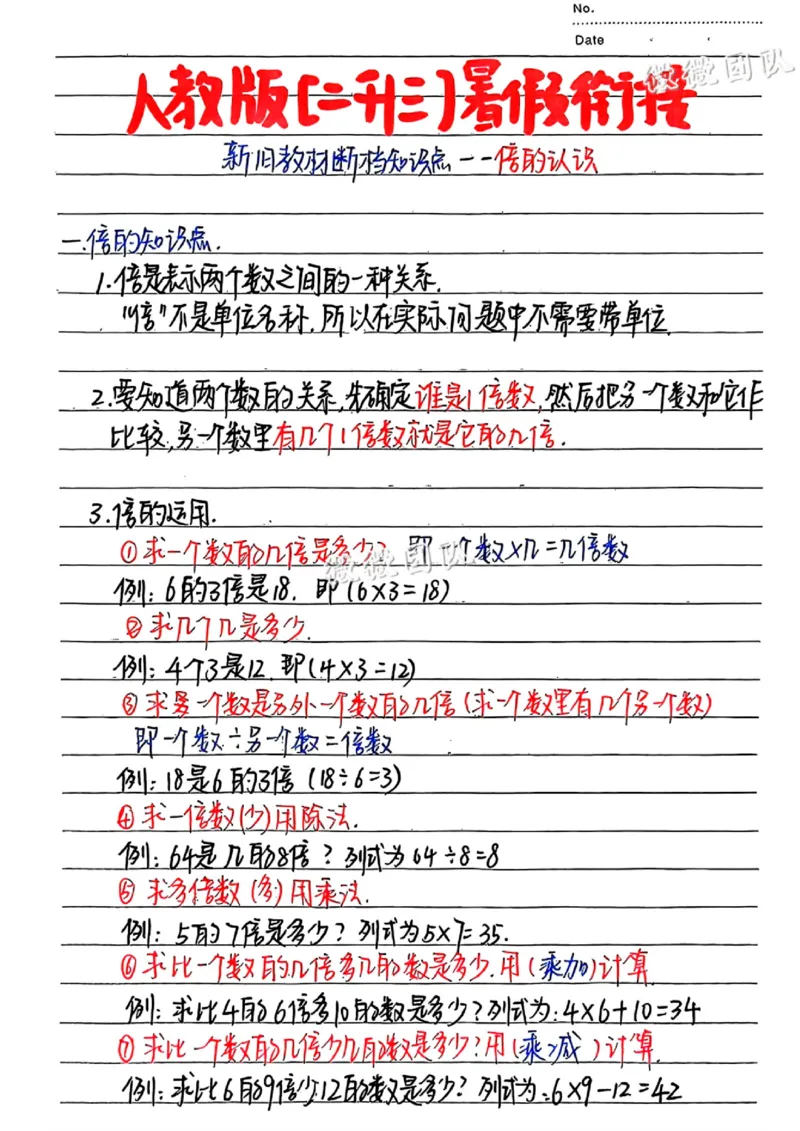 No.
Date
微微团队
人教版[二升三]暑假衔接
新旧教材断档知识点--倍的认识
一.倍的知识点.
1.倍是表示两个数之间的一种关系.
"倍"不是单位名称.所以在实际问题中不需要带单位.
2.要知道两个数的关系,先确定谁是1倍数,然后把另一个数和它作
比较,另一个数里有几个1倍数就是它的几倍.
3.倍的运用.
①求一个数的几倍是多少? 即一个数×几=几倍数
微微团队
例:6的3倍是18. 即(6×3=18)
②求几个几是多少.
例:4个3是12.即(4×3=12)
③求一个数是另外一个数的几倍(求一个数里有几个另一个数)
即一个数÷另一个数=倍数
例:18是6的3倍 (18÷6=3)
④求一倍数(少)用除法.
例:64是几的8倍?列式为64÷8=8
⑤求多倍数(多)用乘法.
例:5的7倍是多少?列式为5×7=35.
⑥求比一个数的几倍多几的数是多少.用(乘加)计算.
例:求比4的6倍多10的数是多少?列式为:4×6+10=34
⑦求比一个数的几倍少几的数是多少?用(乘减)计算.
例:求比6的9倍少12的数是多少?列式为:6×9-12=42